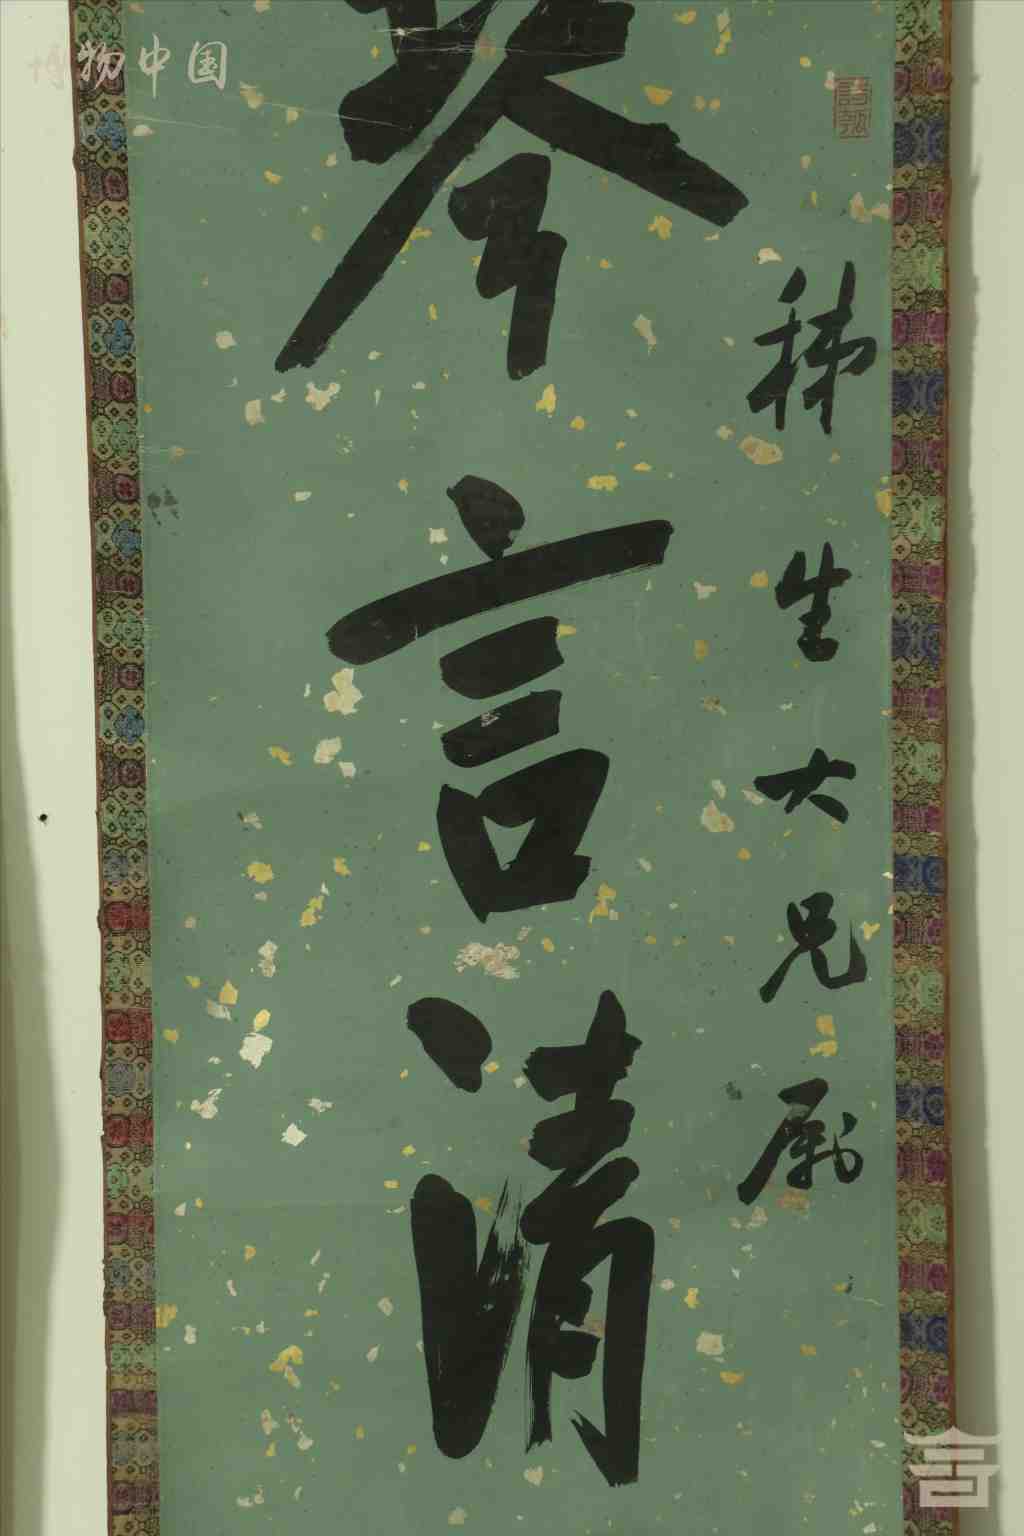 博物中国
稊生大兄属
琴言清